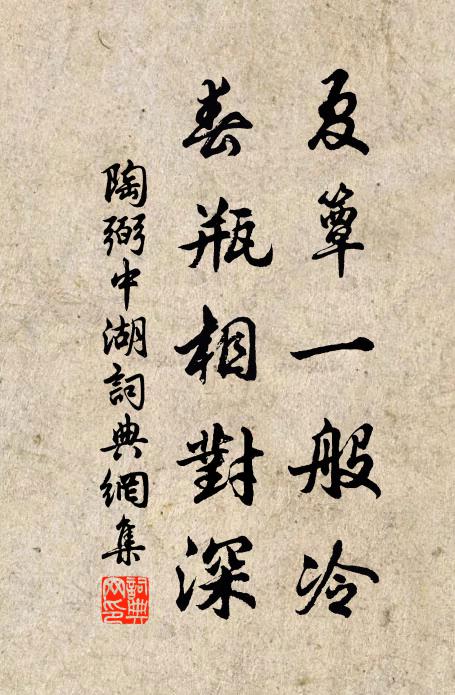 夏簟一般冷
春瓶相對深
陶弼中湖詞典網集
詞典網印